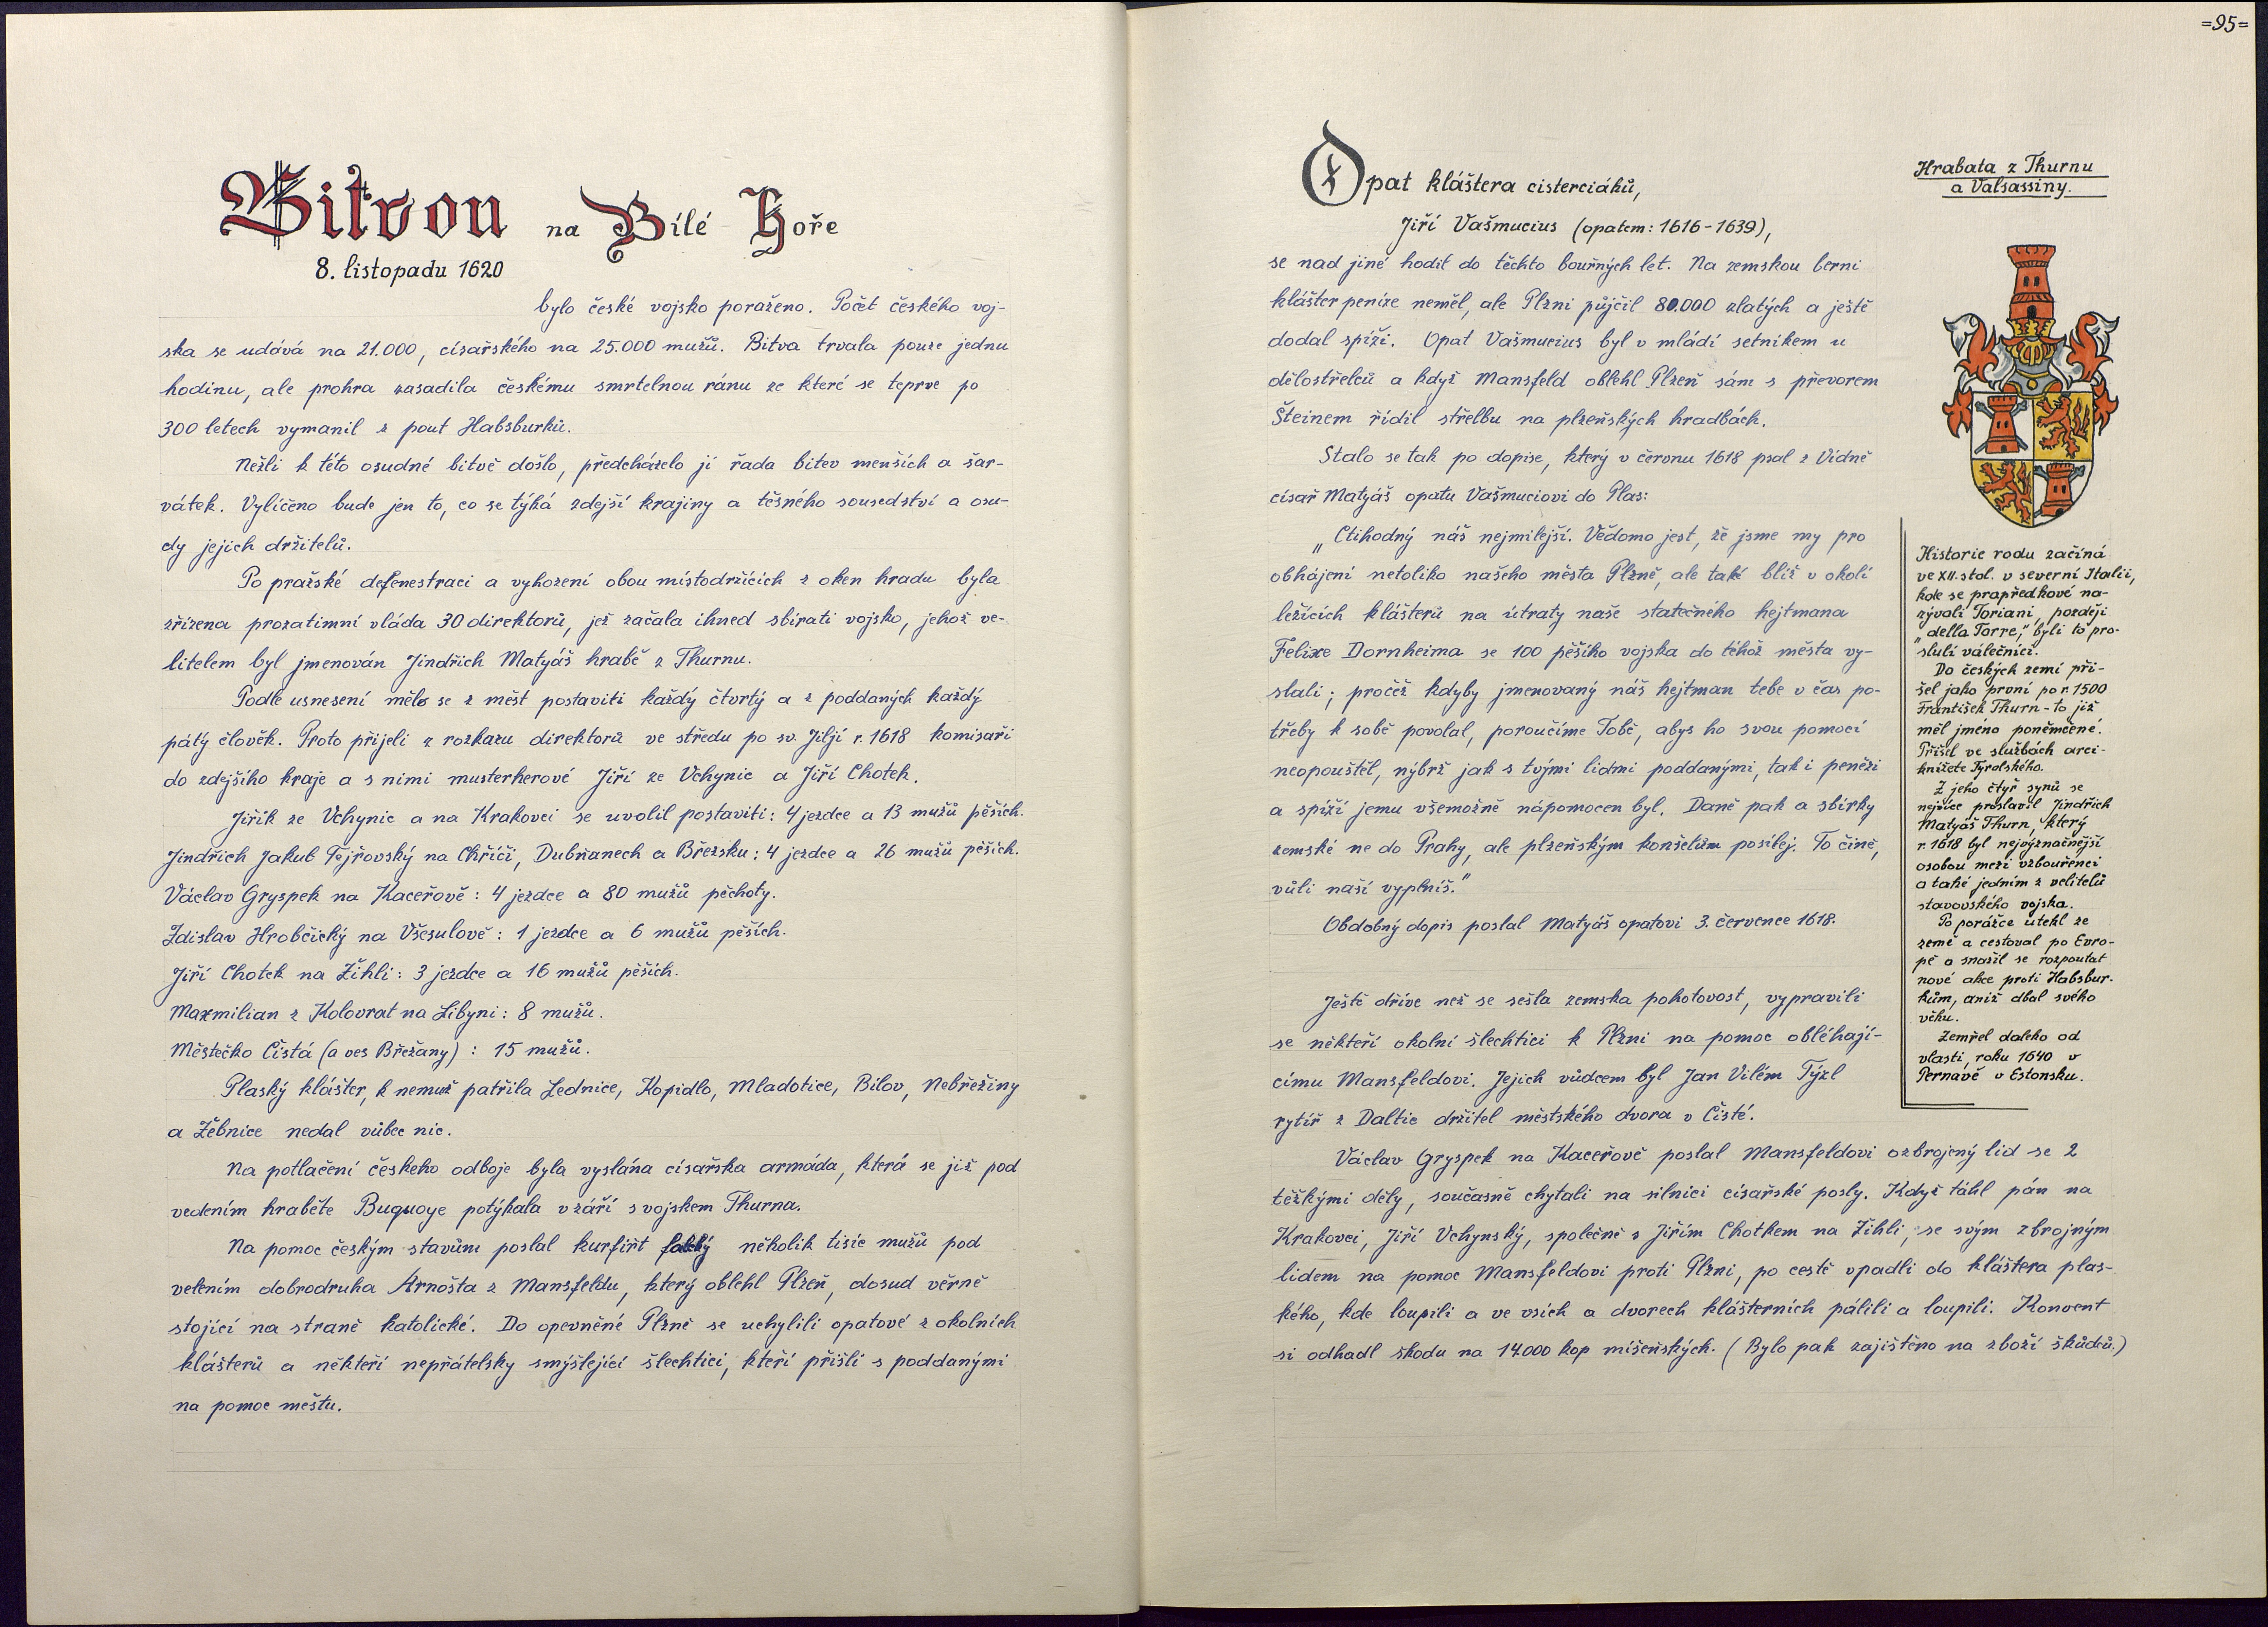 Bitvou na Bílé Hoře
8. listopadu 1620
bylo české vojsko poraženo. Počet českého voj-
ska se udává na 21.000, císařského na 25.000 mužů. Bitva trvala pouze jednu
hodinu, ale prohra zasadila českému smrtelnou ránu ze které se teprve po
300 letech vymanil z pout Habsburků.
Nežli k této osudné bitvě došlo, předcházelo jí řada bitev menších a šar-
vátek. Vylíčeno bude jen to, co se týká zdejší krajiny a těsného sousedství a osu-
dy jejich držitelů.
Po pražské defenestraci a vyhození obou místodržících z oken hradu byla
zřízena prozatimní vláda 30 direktorů, jež začala ihned sbírati vojsko, jehož ve-
litelem byl jmenován Jindřich Matyáš hrabě z Thurnu.
Podle usnesení mělo se z měst postaviti každý čtvrtý a z poddaných každý
pátý člověk. Proto přijeli z rozkazu direktorů ve středu po sv. Jiljí r. 1618 komisaři
do zdejšího kraje a s nimi musterherové Jiří ze Vchynic a Jiří Chotek.
Jiřík ze Vchynic a na Krakovci se uvolil postaviti: 4 jezdce a 13 mužů pěších.
Jindřich Jakub Tejřovský na Chříči, Dubňanech a Břežsku: 4 jezdce a 26 mužů pěších.
Václav Gryspek na Kaceřově: 4 jezdce a 80 mužů pěchoty.
Zdislav Hrobčický na Všesulově: 1 jezdce a 6 mužů pěších.
Jiří Chotek na Žihli: 3 jezdce a 16 mužů pěších.
Maxmilian z Kolovrat na Libyni: 8 mužů.
Městečko Čistá (a ves Břežany): 15 mužů.
Plaský klášter, k nemuž patřila Lednice, Kopidlo, Mladotice, Bílov, Nebřežiny
a Žebnice nedal vůbec nic.
Na potlačení českeho odboje byla vyslána císařska armáda, která se již pod
vedením hraběte Buquoye potýkala v září s vojskem Thurna.
Na pomoc českým stavům poslal kurfiřt falcký několik tisíc mužů pod
velením dobrodruha Arnošta z Mansfeldu, který oblehl Plzeň, dosud věrně
stojící na straně katolické. Do opevněné Plzně se uchylili opatové z okolních
klášterů a někteří nepřátelsky smýšlející šlechtici, kteří přišli s poddanými
na pomoc městu.
=95=
Opat kláštera cisterciáků,
Jiří Vašmucius (opatem: 1616-1639),
se nad jiné hodil do těchto bouřných let. Na zemskou berni
klášter peníze neměl, ale Plzni půjčil 80.000 zlatých a ještě
dodal spíži. Opat Vašmucius byl v mládí setníkem u
dělostřelců a když Mansfeld oblehl Plzeň sám s převorem
Šteinem řídil střelbu na plzeňských hradbách.
Stalo se tak po dopise, který v červnu 1618 psal z Vídně
císař Matyáš opatu Vašmuciovi do Plas:
„Ctihodný náš nejmilejší. Vědomo jest, že jsme my pro
obhájení netoliko našeho města Plzně, ale také blíž v okolí
ležících klášterů na útraty naše statečného hejtmana
Felixe Dornheima se 100 pěšího vojska do téhož města vy-
slali; pročež kdyby jmenovaný náš hejtman tebe v čas po-
třeby k sobě povolal, poroučíme Tobě, abys ho svou pomocí
neopouštěl, nýbrž jak s tvými lidmi poddanými, tak i penězi
a spíží jemu všemožně nápomocen byl. Daně pak a sbírky
zemské ne do Prahy, ale plzeňským konšelům posílej. To čině,
vůli naší vyplníš."
Obdobný dopis poslal Matyáš opatovi 3. července 1618.
Ještě dříve než se sešla zemska pohotovost, vypravili
se někteří okolní šlechtici k Plzni na pomoc obléhají-
címu Mansfeldovi. Jejich vůdcem byl Jan Vilém Týzl
rytíř z Daltic držitel městského dvora v Čisté.
Václav Gryspek na Kaceřově poslal Mansfeldovi ozbrojený lid se 2
těžkými děly, současně chytali na silnici císařské posly. Když táhl pán na
Krakovci, Jiří Vchynský, společně s Jiřím Chotkem na Žihli, se svým zbrojným
lidem na pomoc Mansfeldovi proti Plzni, po cestě vpadli do kláštera plas-
kého, kde loupili a ve vsích a dvorech klášterních pálili a loupili. Konvent
si odhadl skodu na 14.000 kop míšeňských. (Bylo pak zajištěno na zboží škůdců.)
Hrabata z Thurnu
a Valsassiny.
Historie rodu začíná
ve XII. stol. v severní Italii,
kde se prapředkové na-
zývali Toriani, později
„della Torre", byli to pro-
slulí válečníci.
Do českých zemí při-
šel jako první po r. 1500
František Thurn - to již
měl jméno poněmčené.
Přišel ve službách arci-
knížete Tyrolského.
Z jeho čtyř synů se
nejvíce proslavil Jindřich
Matyáš Thurn, který
r. 1618 byl nejvýznačnější
osobou mezi vzbouřenci
a také jedním z velitelů
stavovského vojska.
Po porážce utekl ze
země a cestoval po Evro-
pě a snažil se rozpoutat
nové akce proti Habsbur-
kům, aniž dbal svého
věku.
Zemřel daleko od
vlasti, roku 1640 v
Pernávě v Estonsku.